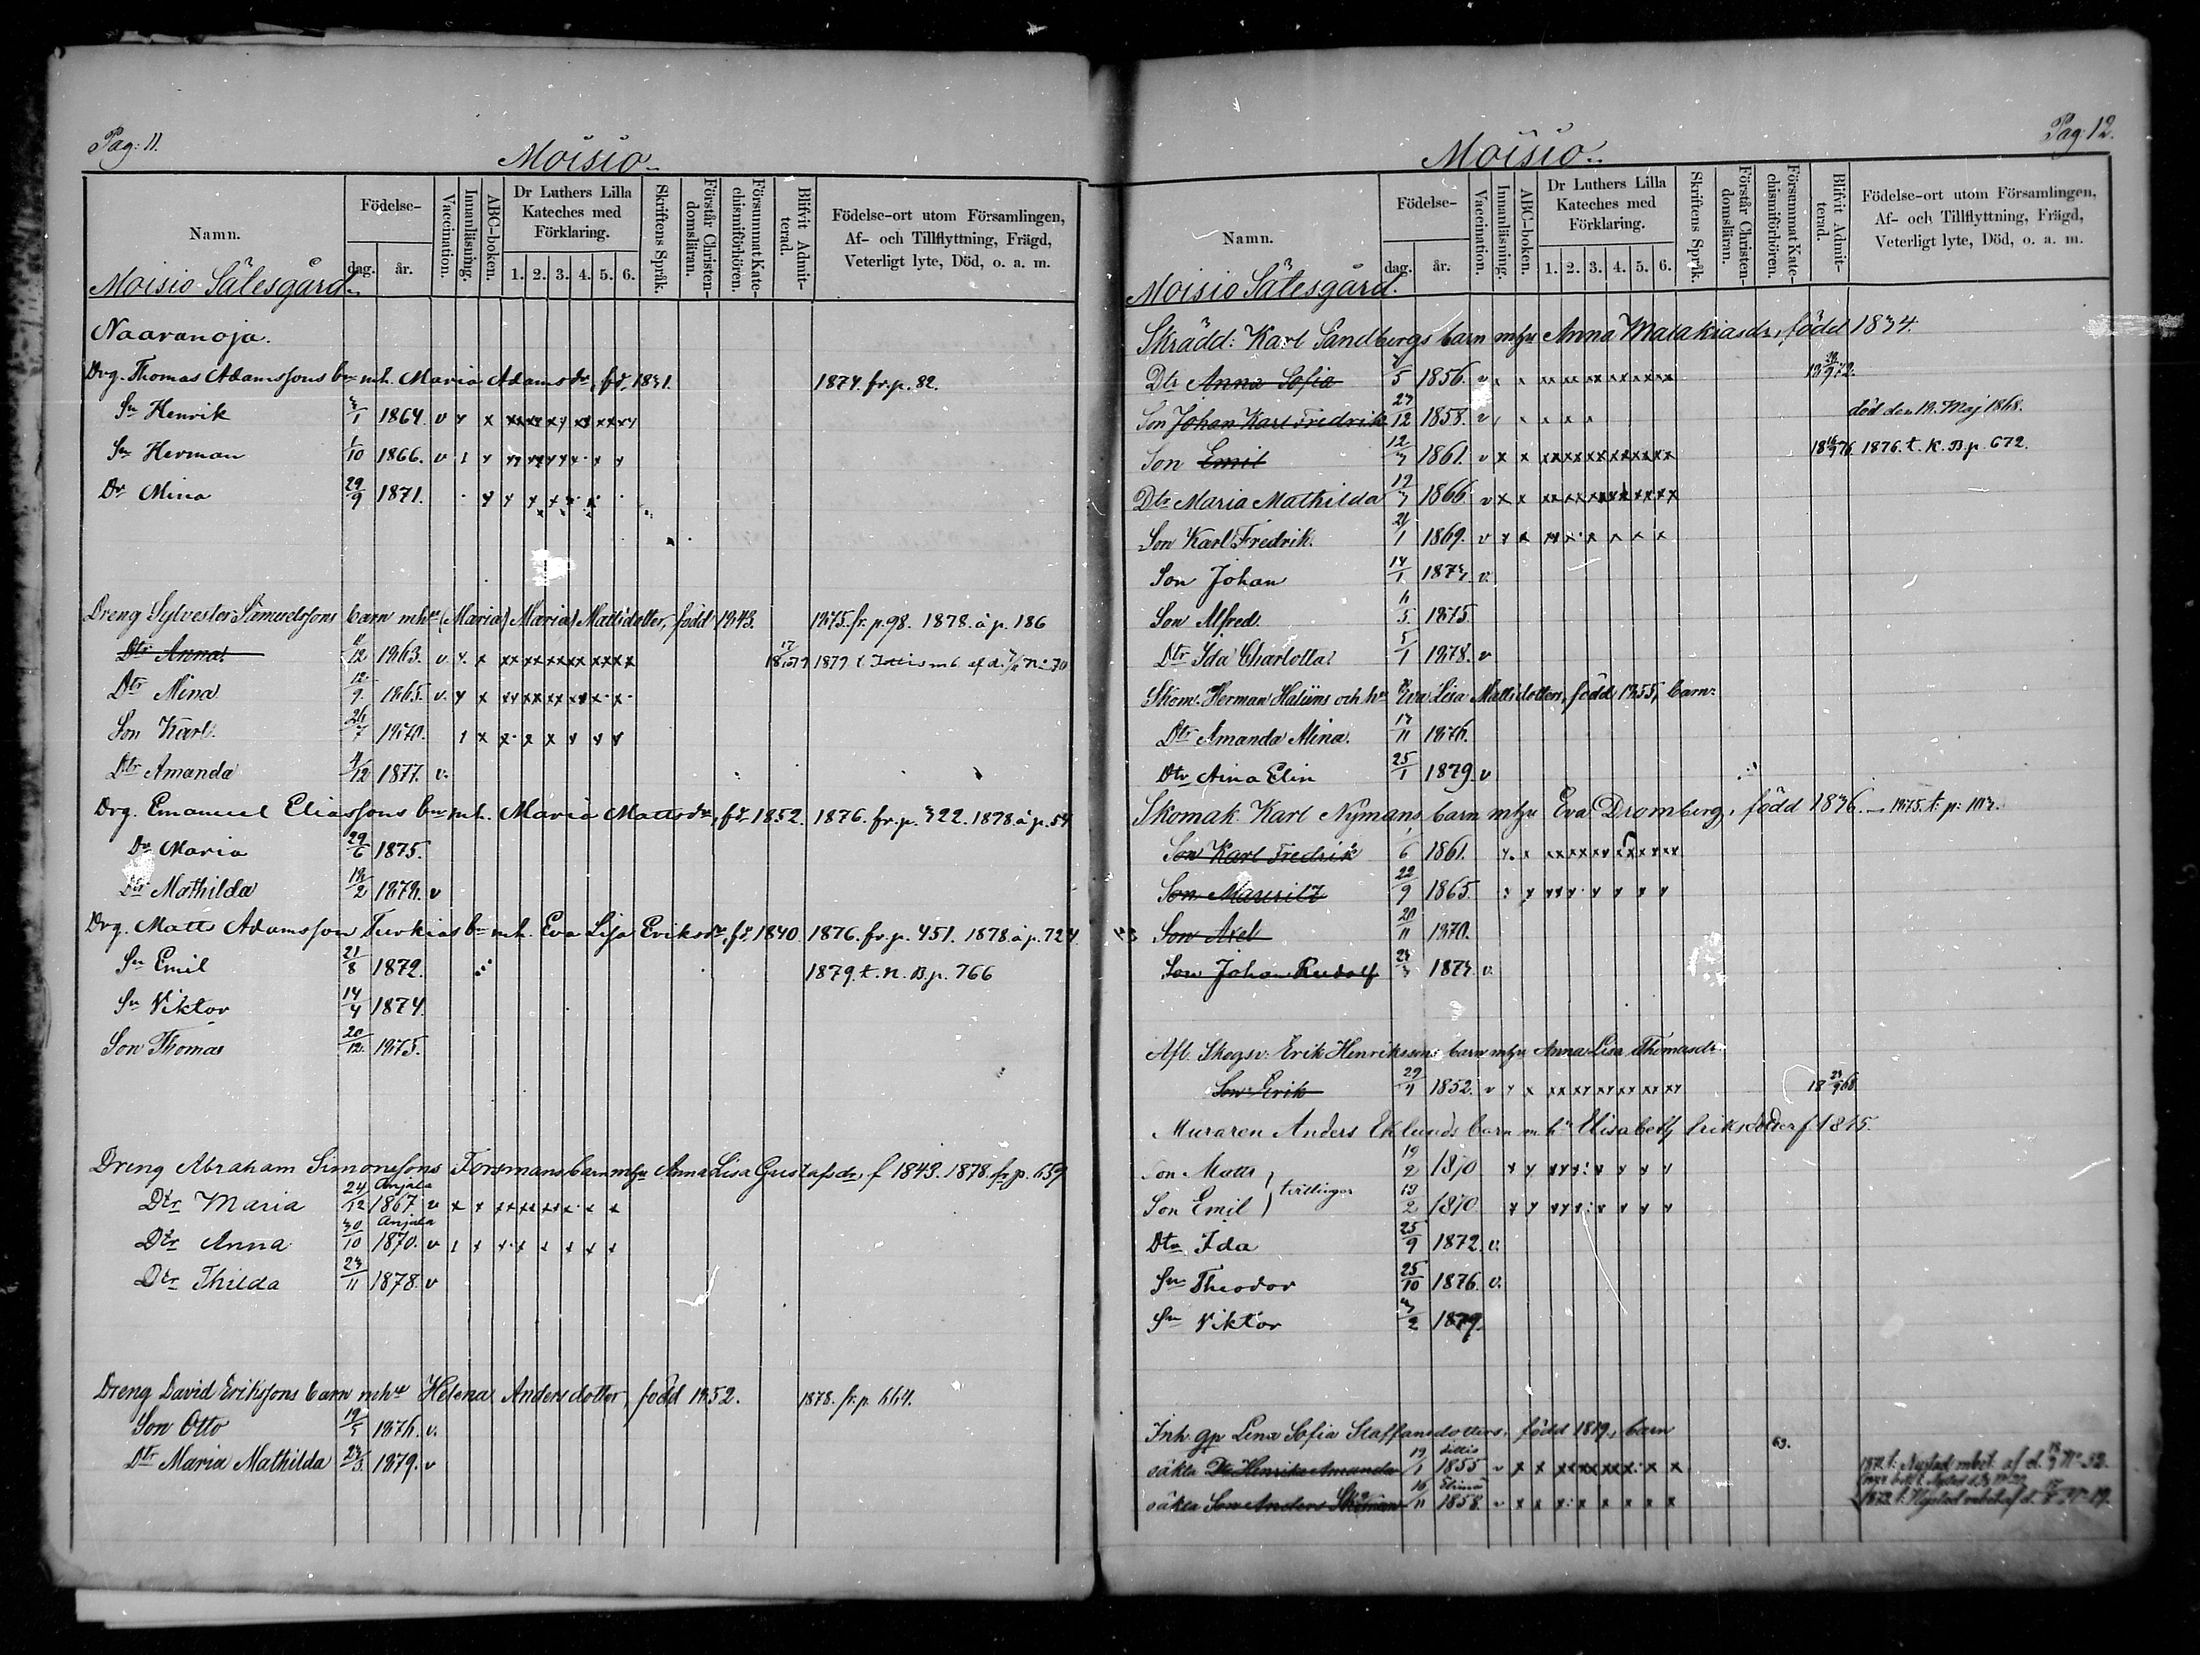 Pag: 11.
Moisio.
Namn.
Födelse-
dag.
år.
Vaccination.
Innanläsning.
ABC-boken.
Dr Luthers Lilla Kateches med Förklaring.
1. 2. 3. 4. 5. 6.
Skriftens Språk.
Förstår Christendomsläran.
Försummat Katechismiförhören.
Blifvit Admitterad.
Födelse-ort utom Församlingen,
Af- och Tillflyttning, Frägd,
Veterligt lyte, Död, o. a. m.
Moisio Sätesgård.
Naaranoja.
Drg. Thomas Adamssons bn mh. Maria Adamsdr, fd. 1831. 1874. fr. p. 82.
Sn Henrik 3/1 1864. v
Sn Herman 1/10 1866. v
Dr Mina 29/9 1871.
Dreng Sylvester Samuelssons barn mhu (Maria) Maria Mattsdotter, född 1843. 1875. fr. p. 98. 1878. à p. 186
Dtr Anna 11/12 1863. v.
Dtr Mina 12/9 1865. v.
Son Karl 26/7 1870.
Dtr Amanda 4/12 1877. v.
Drg. Emanuel Eliassons bn mh. Maria Mattsdr, fd. 1852. 1876. fr. p. 322. 1878 à p. 54
Dr Maria 29/6 1875.
Dtr Mathilda 18/2 1878. v
Drg. Matts Adamsson Turkias bn mh. Eva Lisa Eriksdr, fd. 1840. 1876. fr. p. 451. 1878 à p. 724
Sn Emil 21/8 1872. 1879. t. N. B. p. 766
Sn Viktor 14/4 1874.
Son Thomas 20/12 1875.
Dreng Abraham Simonssons Forsmans barn mhu Anna Lisa Gustafsdr f 1843. 1878. fr p. 659
Dtr Maria 24/12 Anjala 1867 v
Dtr Anna 30/10 Anjala 1870. v
Dtr Thilda 23/11 1878. v
Dreng David Erikssons barn mhu Helena Andersdotter, född 1852. 1878. fr. p. 664.
Son Otto 19/5 1876. v.
Dtr Maria Mathilda 23/3 1879. v
Pag: 12.
Moisio.
Namn.
Födelse-
dag.
år.
Vaccination.
Innanläsning.
ABC-boken.
Dr Luthers Lilla Kateches med Förklaring.
1. 2. 3. 4. 5. 6.
Skriftens Språk.
Förstår Christendomsläran.
Försummat Katechismiförhören.
Blifvit Admitterad.
Födelse-ort utom Församlingen,
Af- och Tillflyttning, Frägd,
Veterligt lyte, Död, o. a. m.
Moisio Sätesgård.
Skrädd: Karl Sandbergs barn mhu Anna Malakiasdr, född 1834
Dtr Anna Sofia 1856. v
Son Johan Karl Fredrik 23/12 1858. v död den 19. Maj 1868.
Son Emil 12/3 1861. v 1876. t. K. B. p. 672.
Dtr Maria Mathilda 19/3 1866. v
Son Karl Fredrik. 21/1 1869. v
Son Johan 14/1 1873. v.
Son Alfred. 11/5 1875.
Dtr Ida Charlotta. 5/1 1878. v
Skom. Herman och hu Eva Lisa Mattsdotters, född 1855, barn:
Dtr Amanda Mina. 17/11 1876.
Dtr Aina Elin 25/1 1879. v
Skomak. Karl Nymans barn mhu Eva Dromberg, född 1836.
Son Karl Fredrik 6 1861.
Son Mauritz 22/9 1865.
Son Axel 20/11 1870.
Son Johan Rudolf 23/3 1873. v.
Afl. Skogsv. Erik Henrikssons barn mhu Anna Lisa Thomasdr
Son Erik 1852. v
Muraren Anders Eklunds barn m hu Elisabeth Eriksdotter f 1845.
Son Matts 19/2 1870
tvillingar
Son Emil 19/2 1870
Dtr Ida 25/9 1872. v.
Sn Theodor 25/10 1876. v.
Sn Viktor 3/2 1879.
Inh. gp Lena Sofia Staffansdotters, född 1819, barn
oäkta Dtr Henrika Amanda 19/1 Littis 1855 v 69.
oäkta Son Anders 16/11 Elimä 1858. v